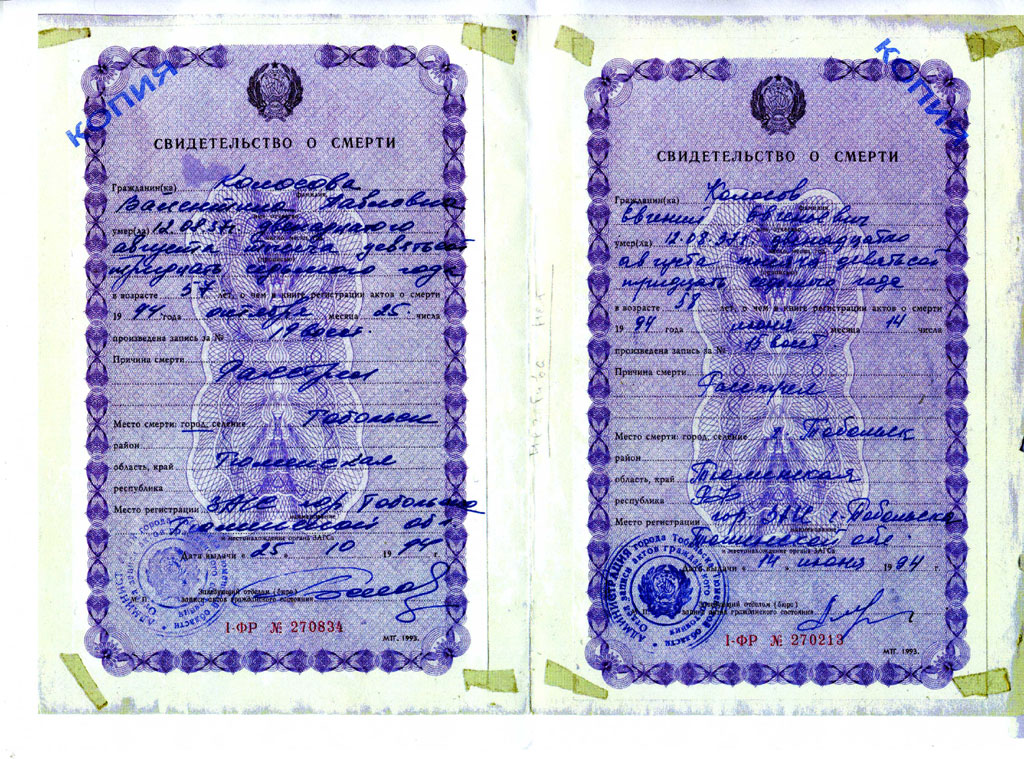 КОПИЯ
СВИДЕТЕЛЬСТВО О СМЕРТИ
Гражданин(ка) Колосова
Валентина Павловна
умер(ла) 12.08.37г. двенадцатого
августа тысяча девятьсот
тридцать седьмого года
в возрасте 57 лет, о чем в книге регистрации актов о смерти
19 94 года октября месяца 25 числа
произведена запись за № 19 восст.
Причина смерти
Расстрел
Место смерти: город, селение Тобольск
район
область, край Тюменская
республика
Место регистрации ЗАГС гор. Тобольска
Тюменской обл.
и местонахождение органа ЗАГСа
Дата выдачи « 25 » 10 19 94 г.
М. П. Заведующий отделом (бюро)
записи актов гражданского состояния
I-ФР № 270834
МПГ. 1993.
КОПИЯ
СВИДЕТЕЛЬСТВО О СМЕРТИ
Гражданин(ка) Колосов
фамилия
Евгений Евгеньевич
умер(ла) 12.08.37г. двенадцатого
августа тысяча девятьсот
тридцать седьмого года
в возрасте 58 лет, о чем в книге регистрации актов о смерти
19 94 года июня месяца 14 числа
произведена запись за № 15 восст
Причина смерти
Расстрел
Место смерти: город, селение г. Тобольск
район
область, край Тюменская
республика РФ
Место регистрации гор ЗАГС г. Тобольска
наименование
Тюменской обл.
и местонахождение органа ЗАГСа
Дата выдачи « 14 » июня 19 94 г.
Заведующий отделом (бюро)
записи актов гражданского состояния
I-ФР № 270213
МПГ. 1993.